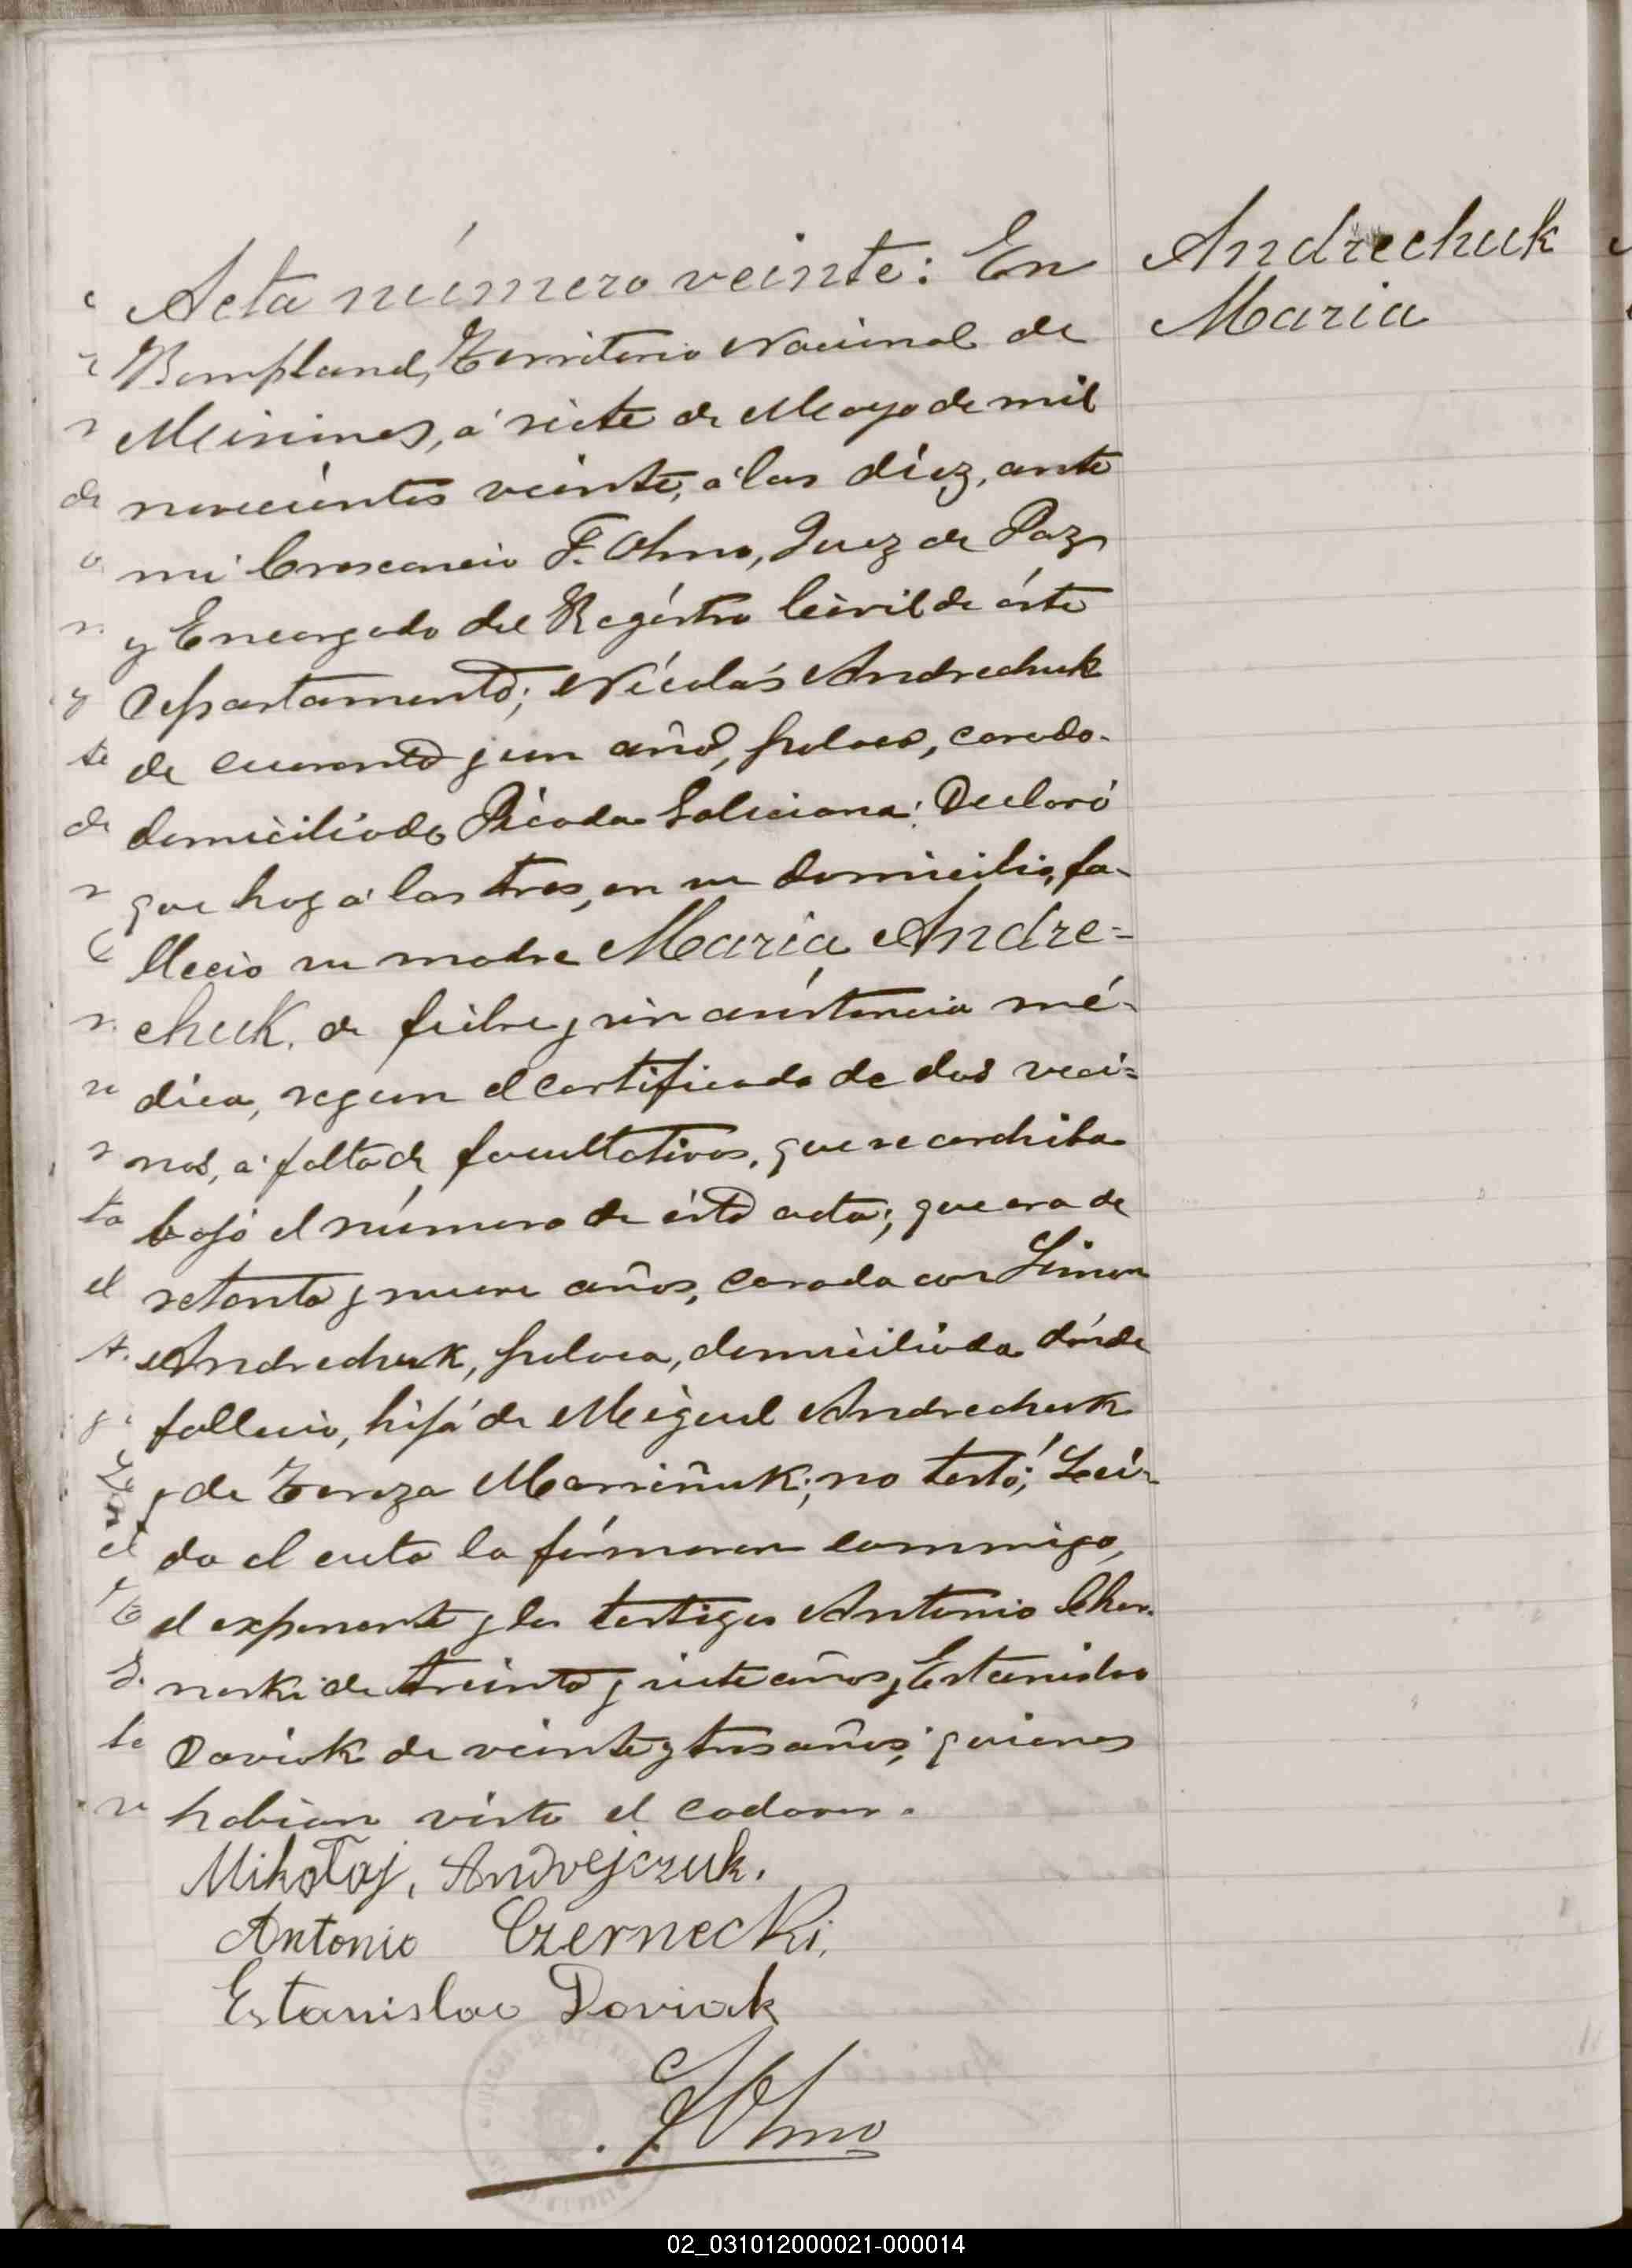 Acta número veinte: En
Bompland, Territorio Nacional de
Misiones, á siete de Mayo de mil
novecientos veinte, á las diéz, ante
mi Crescencio F. Olmo, Juez de Paz
y Encargado del Regístro Civil de éste
Departamento; Nícolás Andrechuk
de cuarenta y un años, polaco, casado.
domiciliado Picada Galiciana: Declaró
que hoy á las tres, en su domicilio, fa-
llecio su madre Maria Andre=
chuk, de fiebre y sin asístencia mé-
díca, segun el certificado de dos veci=
nos, á falta de facultativos, que se archiba
bajo el número de ésta acta; que era de
setenta y nueve años, casada con Simon
Andrechuk, polaca, domiciliada dónde
fallecio, hija de Miguel Andrechuk
y de Tereza Marriñuk; no testó; Leí-
da el acta la fírmaron conmigo,
el exponente y los testigos Antonio Cher-
neski de treinta y siete años y Estanislao
Doviak de veinte y tres años; quienes
habian visto el cadaver.
Mikołaj, Andrejczuk.
Antonio Czernecki,
Estanislao Doviak
F Olmo
Andrechuk
Maria
02_031012000021-000014